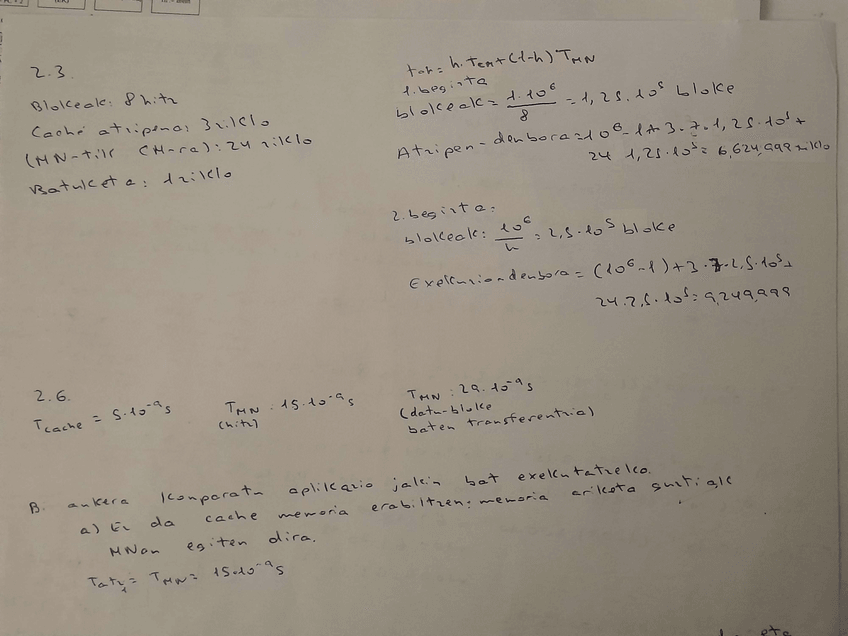 2.3.
Blokeak: 8 hitz
Caché atzipena: 3 ziklo
(MN-tik CM-ra): 24 ziklo
Batuketa: 1 ziklo
tat = h.TCM+(1-h) TMN
1. begizta
blokeak = 1.10^6/8 = 1,25.10^5 bloke
Atzipen-denbora = 10^6-1+3.7.1,25.10^5+
24 1,25.10^5 = 6,624,999 ziklo
2. begizta:
blokeak: 10^6/4 = 2,5.10^5 bloke
Exekuzio-denbora = (10^6-1)+3.7.2,5.10^5+
24.2,5.10^5 = 9,249,999
2.6.
Tcache = 5.10^-9 s
TMN : 15.10^-9 s
(hitz)
TMN : 29.10^-9 s
(datu-bloke
baten transferentzia)
B. aukera konparatu aplikazio jakin bat exekutatzeko.
a) Ez da cache memoria erabiltzen: memoria ariketa guztiak
MNan egiten dira.
Tatz1 = TMN = 15.10^-9 s